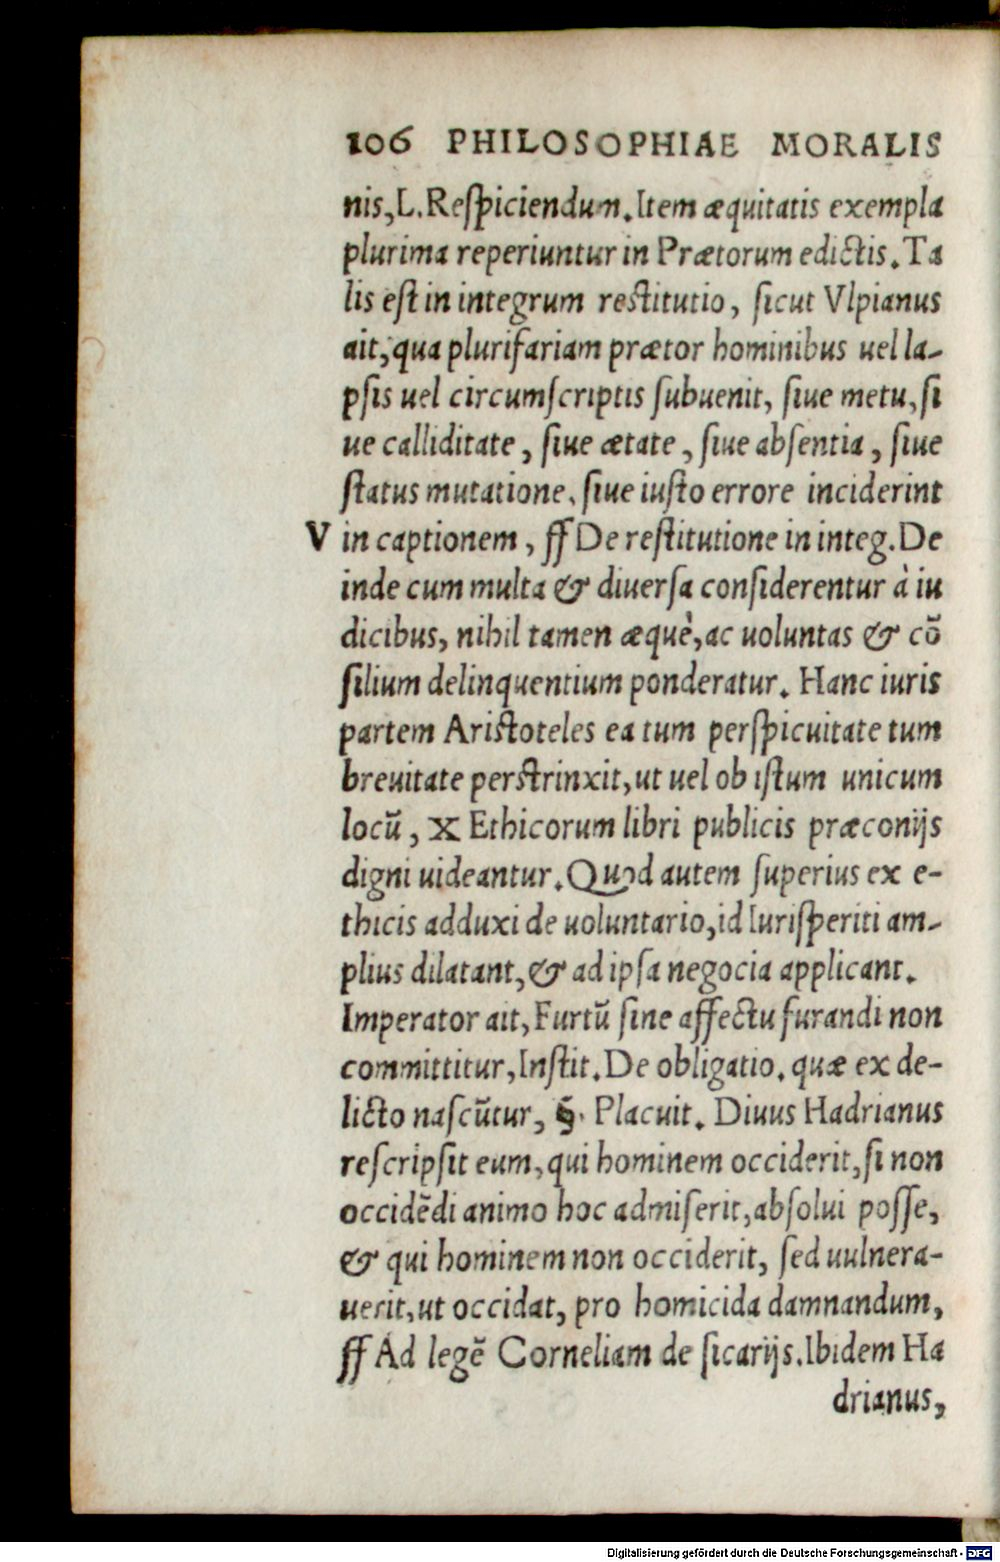 106 PHILOSOPHIAE MORALIS
nis, L. Reſpiciendum. Item æquitatis exempla
plurima reperiuntur in Prætorum edictis. Ta
lis eſt in integrum reſtitutio, ſicut Vlpianus
ait, qua plurifariam prætor hominibus uel la-
pſis uel circumſcriptis ſubuenit, ſiue metu, ſi
ue calliditate, ſiue ætate, ſiue abſentia, ſiue
ſtatus mutatione, ſiue iuſto errore inciderint
V in captionem, ff De reſtitutione in integ. De
inde cum multa & diuerſa conſiderentur à iu
dicibus, nihil tamen æquè, ac uoluntas & cō
ſilium delinquentium ponderatur. Hanc iuris
partem Ariſtoteles ea tum perſpicuitate tum
breuitate perſtrinxit, ut uel ob iſtum unicum
locū, X Ethicorum libri publicis præconijs
digni uideantur. Quod autem ſuperius ex e-
thicis adduxi de uoluntario, id Iuriſperiti am-
plius dilatant, & ad ipſa negocia applicant.
Imperator ait, Furtū ſine affectu furandi non
committitur, Inſtit. De obligatio. quæ ex de-
licto naſcūtur, §. Placuit. Diuus Hadrianus
reſcripſit eum, qui hominem occiderit, ſi non
occidēdi animo hoc admiſerit, abſolui poſſe,
& qui hominem non occiderit, ſed uulnera-
uerit, ut occidat, pro homicida damnandum,
ff Ad legē Corneliam de ſicarijs. Ibidem Ha
drianus,
Digitalisierung gefördert durch die Deutsche Forschungsgemeinschaft - DFG